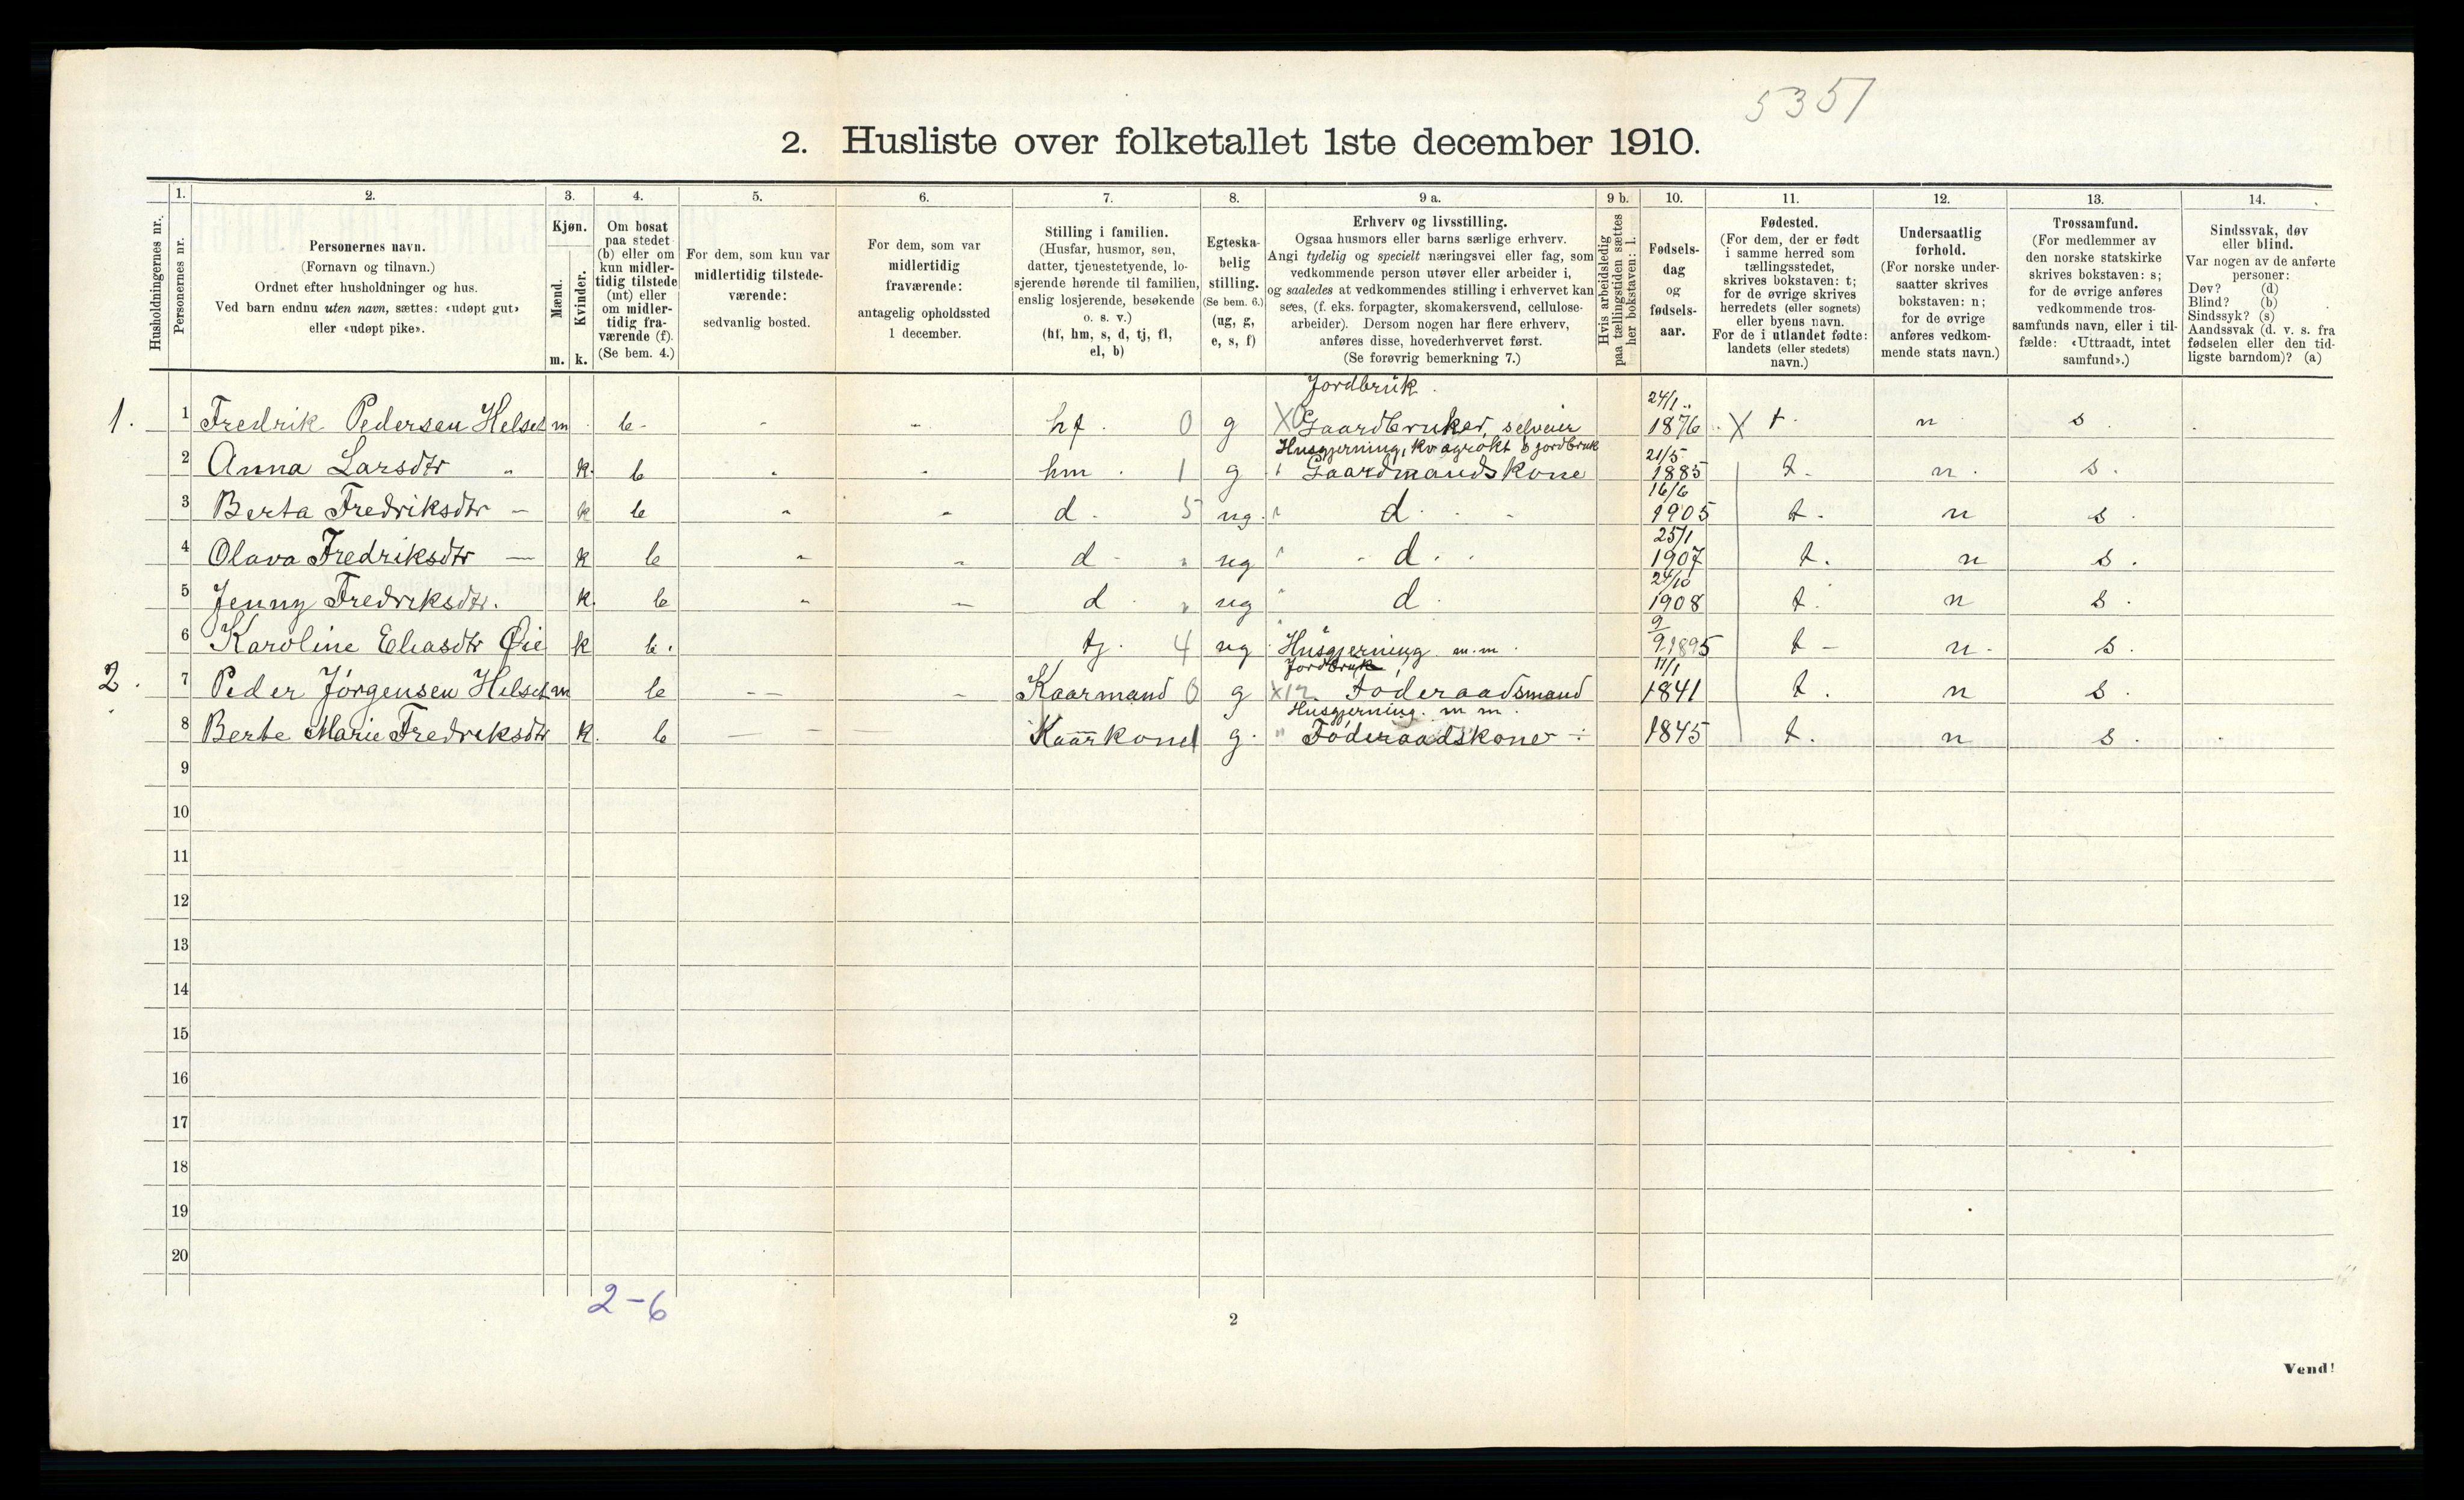 5351
2. Husliste over folketallet 1ste december 1910.
Husholdningernes nr.
1.
Personernes nr.
2.
Personernes navn.
(Fornavn og tilnavn.)
Ordnet efter husholdninger og hus.
Ved barn endnu uten navn, sættes: «udøpt gut»
eller «udøpt pike».
3.
Kjøn.
Mænd.
Kvinder.
m. k.
4.
Om bosat
paa stedet
(b) eller om
kun midler-
tidig tilstede
(mt) eller
om midler-
tidig fra-
værende (f).
(Se bem. 4.)
5.
For dem, som kun var
midlertidig tilstede-
værende:
sedvanlig bosted.
6.
For dem, som var
midlertidig
fraværende:
antagelig opholdssted
1 december.
7.
Stilling i familien.
(Husfar, husmor, søn,
datter, tjenestetyende, lo-
sjerende hørende til familien,
enslig losjerende, besøkende
o. s. v.)
(hf, hm, s, d, tj, fl,
el, b)
8.
Egteska-
belig
stilling.
(Se bem. 6.)
(ug, g,
e, s, f)
9 a.
Erhverv og livsstilling.
Ogsaa husmors eller barns særlige erhverv.
Angi tydelig og specielt næringsvei eller fag, som
vedkommende person utøver eller arbeider i,
og saaledes at vedkommendes stilling i erhvervet kan
sees, (f. eks. forpagter, skomakersvend, cellulose-
arbeider). Dersom nogen har flere erhverv,
anføres disse, hovederhvervet først.
(Se forøvrig bemerkning 7.)
9 b.
Hvis arbeidsledig
paa tællingstiden sættes
her bokstaven: l.
10.
Fødsels-
dag
og
fødsels-
aar.
11.
Fødested.
(For dem, der er født
i samme herred som
tællingsstedet,
skrives bokstaven: t;
for de øvrige skrives
herredets (eller sognets)
eller byens navn.
For de i utlandet fødte:
landets (eller stedets)
navn.)
12.
Undersaatlig
forhold.
(For norske under-
saatter skrives
bokstaven: n;
for de øvrige
anføres vedkom-
mende stats navn.)
13.
Trossamfund.
(For medlemmer av
den norske statskirke
skrives bokstaven: s;
for de øvrige anføres
vedkommende tros-
samfunds navn, eller i til-
fælde: «Uttraadt, intet
samfund».)
14.
Sindssvak, døv
eller blind.
Var nogen av de anførte
personer:
Døv? (d)
Blind? (b)
Sindssyk? (s)
Aandssvak (d. v. s. fra
fødselen eller den tid-
ligste barndom)? (a)
Jordbruk.
1. 1 Fredrik Pedersen Helset m b - - - hf. 0 g X0 Gaardbruker, selveier 24/1 1876 X t. n s
Husgjerning, kvægrøkt & jordbruk
2 Anna Larsdtr " k. b " " hm. 1 g " Gaardmandskone 21/5 1885 t. n. s.
3 Berta Fredriksdtr - k b " " d. 5 ug. " d. 16/6 1905 t. n s.
4 Olava Fredriksdtr - k b " " d - " ug " d. 25/1 1907 t. n s.
5 Jenny Fredriksdtr. k. b " - d. " ug " d. 24/10 1908 t. n s.
6 Karoline Eliasdtr Øie k b. tj. 4 ug Husgjerning m.m. 9/9 1895 t - n. s.
Jordbruk
2. 7 Peder Jørgensen Helset m b - - - Kaarmand 0 g X12 Føderaadsmand 11/1 1841 t. n s.
Husgjerning. m m.
8 Berte Marie Fredriksdtr k. b - - - Kaarkone 1 g. " Føderaadskone 1845 t. n s.
9
10
11
12
13
14
15
16
17
18
19
20
2-6
2
Vend!